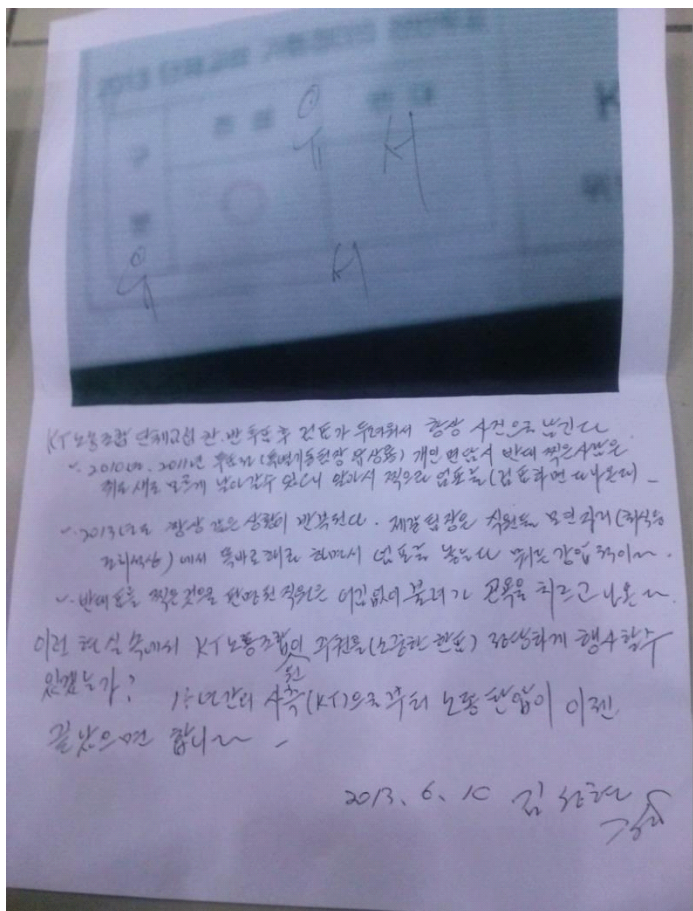 2013 단체교섭
찬성 반대
유 서
유 서
KT노동조합 단체교섭 찬.반 투표 후 검표가 두려워서 항상 사진으로 남긴다
2010년. 2011년 투표시 개인 면담시 반대 찍은 사람은
쥐도 새도 모르게 날아갈수 있으니 알아서 찍으라 엄포를 (검표하면 다 나온다)
2013년도 항상 같은 상황이 반복된다. 팀장은 직원들 모인 자리 (회식등
석상) 에서 똑바로 해라 하면서 엄포를 놓는다 뭐든 강압적이다.
반대표를 찍은것으로 판명된 직원은 어김없이 불려가 곤욕을 치르고 나온다.
이런 현실 속에서 KT노동조합원의 권리를 (소중한 한표) 정당하게 행사할수
있겠는가? 15년간의 사측(KT)으로부터 노동탄압이 이젠
끝났으면 합니다
2013. 6. 10 김